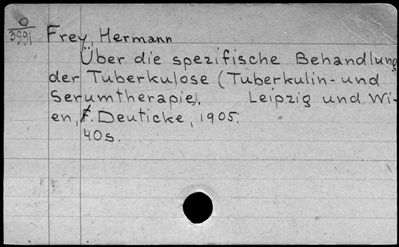 O
3991
Frey Hermann
Über die spezifische Behandlung
der Tuberkulose (Tuberkulin- und
Serumtherapie). Leipzig und Wi-
en, F. Deuticke, 1905.
40s.